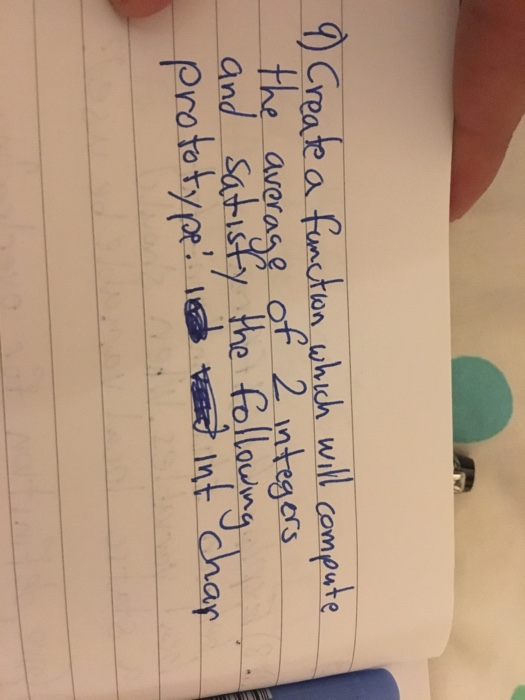 9) Create a function which will compute
the average of 2 integers
and satisfy the following
prototype: int char